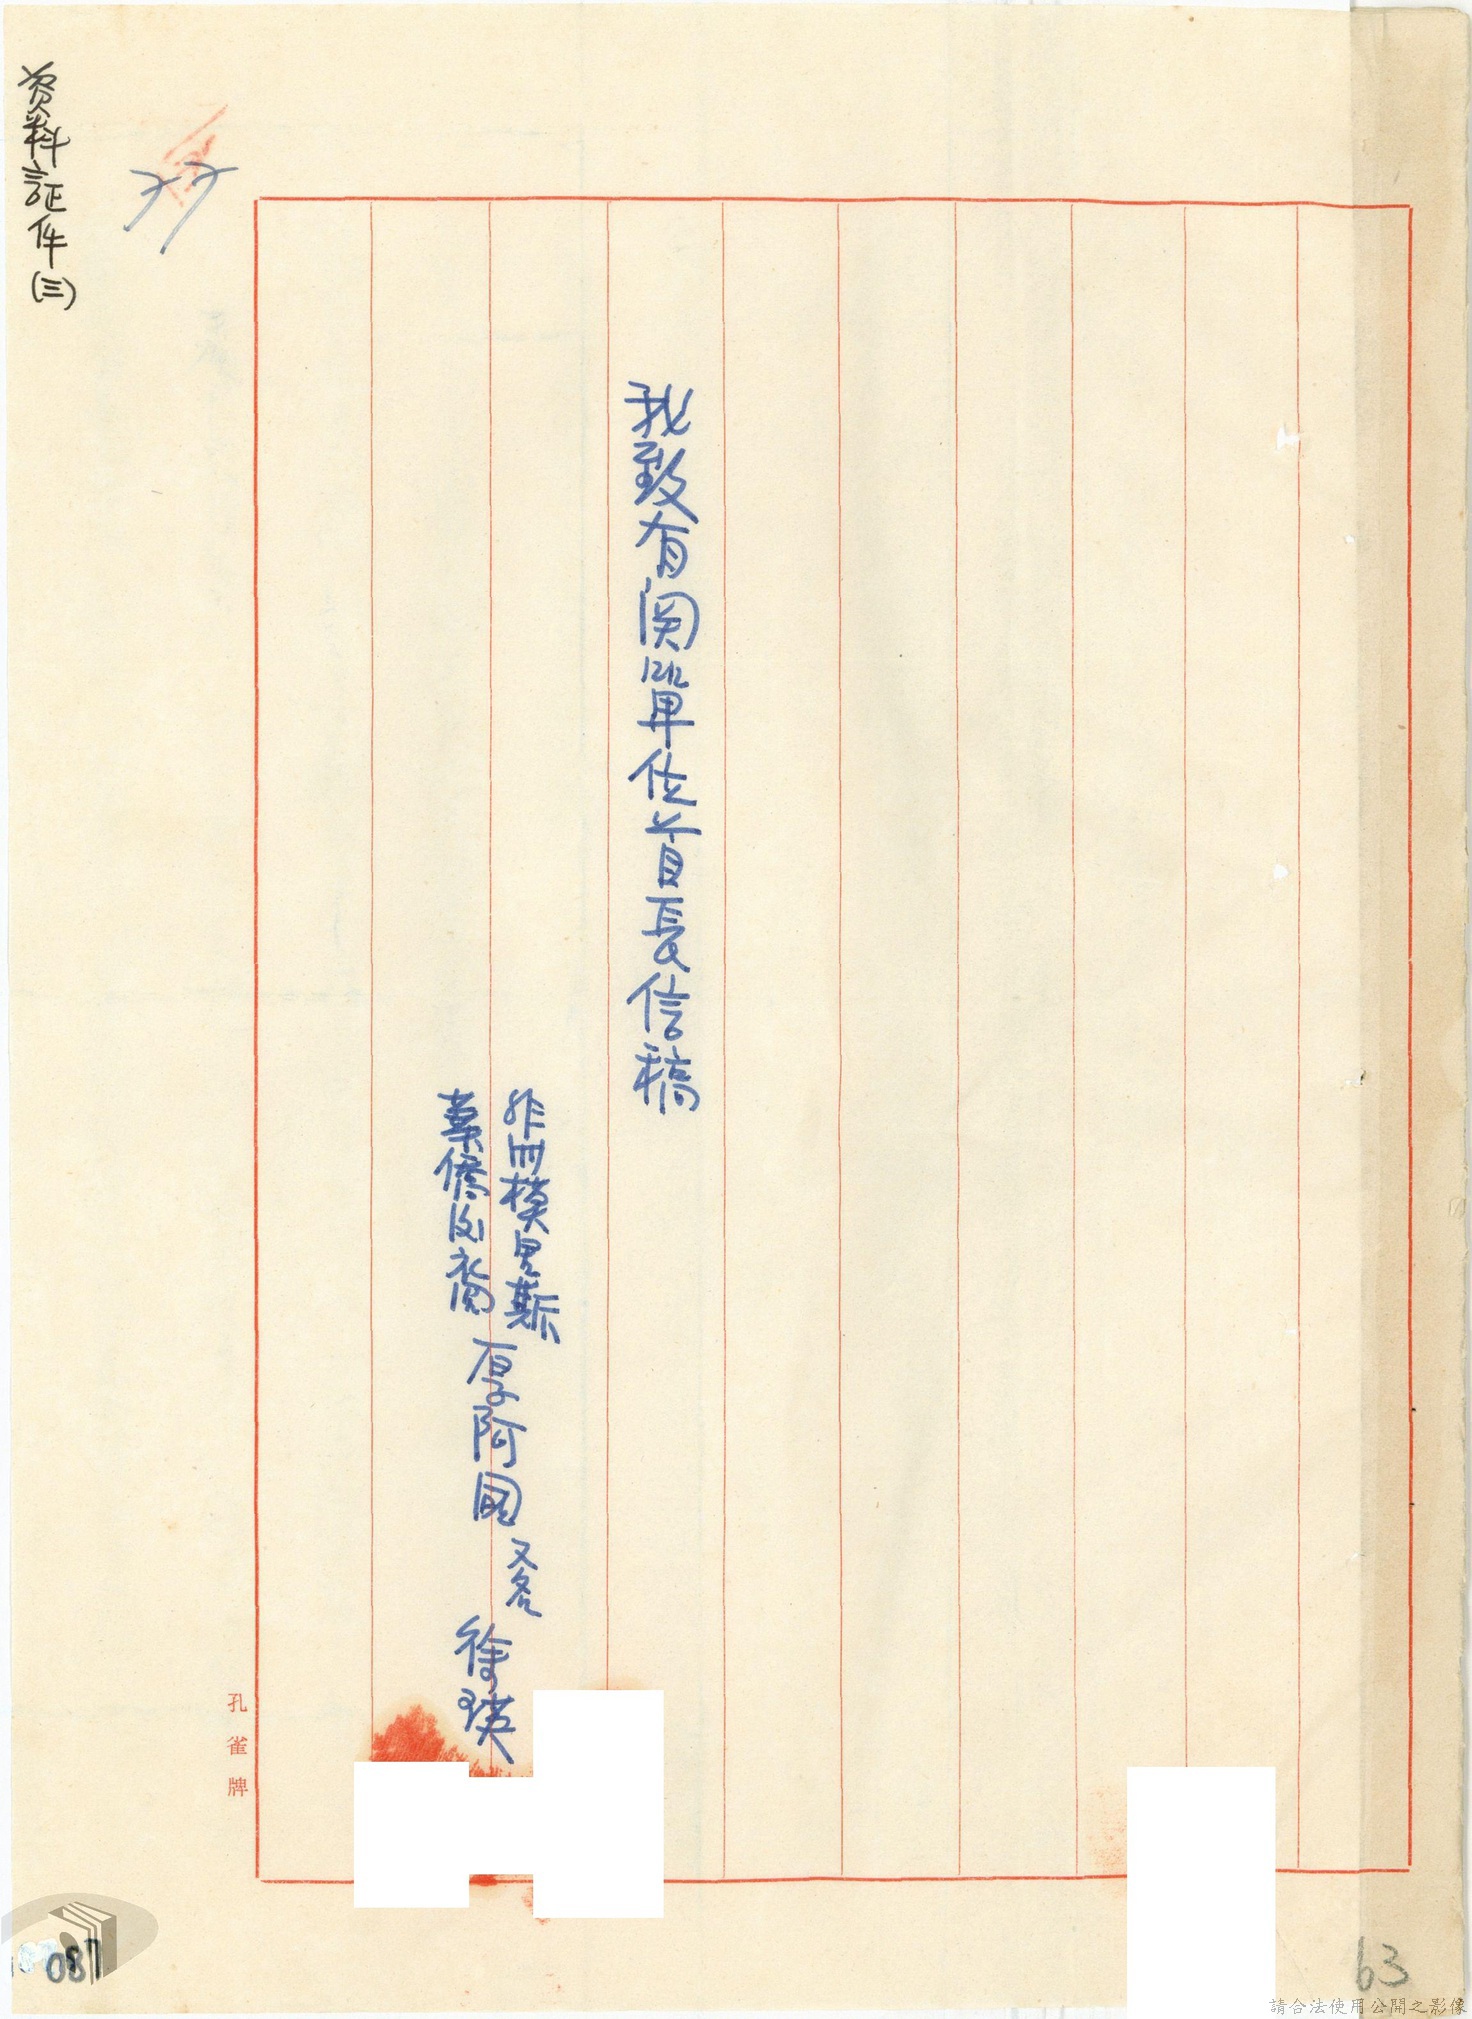 我致有関單位首長信稿
非州模里斯
葉僑内裔
厚阿国
又名
徐瑛
資料証件(三)
孔雀牌
087
63
請合法使用公開之影像